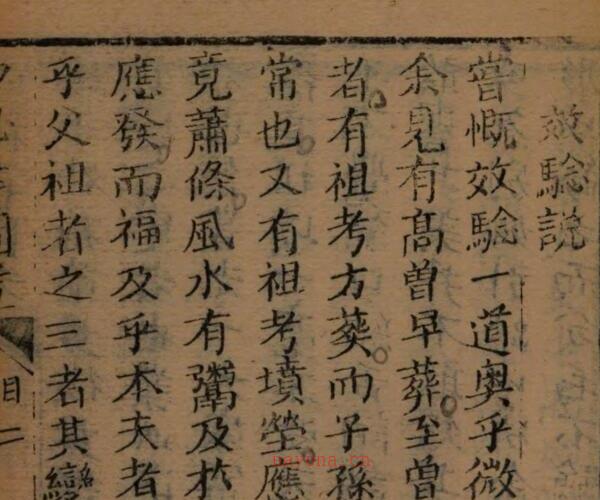 效驗說
嘗慨效驗一道奧乎微
余見有高曾早葬至曾
者有祖考方葬而子孫
常也又有祖考墳塋應
竟蕭條風水有鬻及於
應發而福及乎本夫者
乎父祖者之三者其
目二